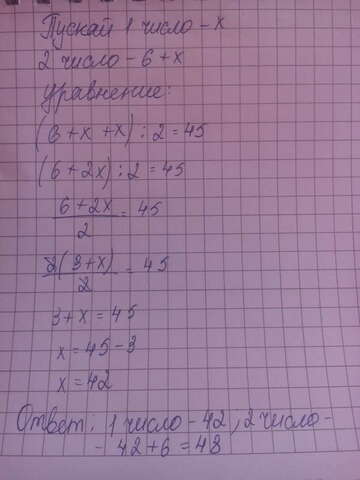 Пускай 1 число - x
2 число - 6 + x
Уравнение:
(6 + x + x) : 2 = 45
(6 + 2x) : 2 = 45
6 + 2x
= 45
2
2(3 + x)
= 45
2
3 + x = 45
x = 45 - 3
x = 42
Ответ: 1 число - 42 ; 2 число -
- 42 + 6 = 48